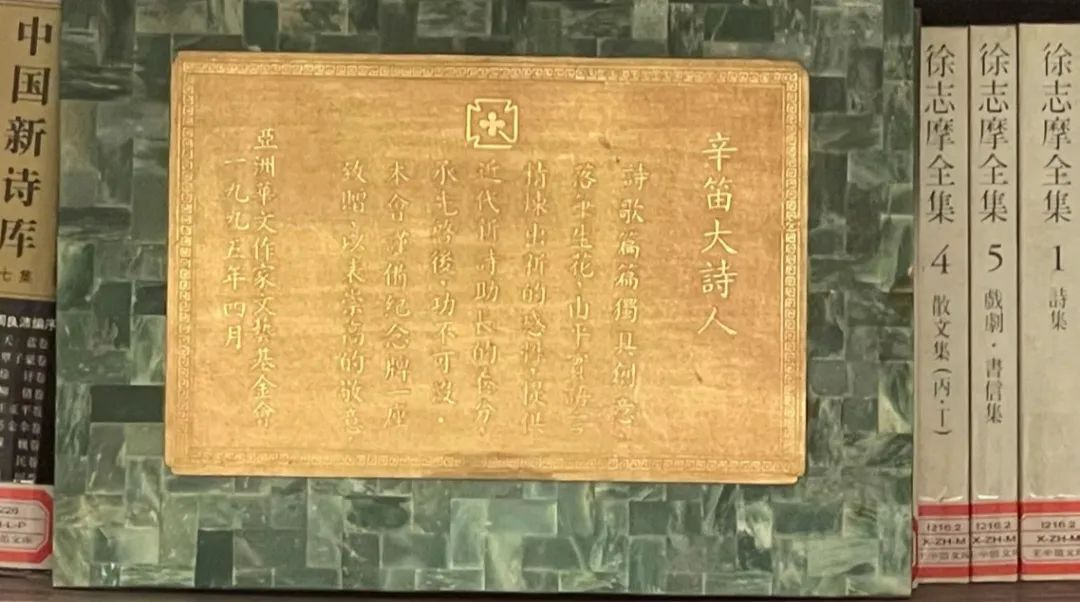 中国新诗库
七集
周良沛编序
辛笛大詩人
詩歌篇篇獨具創意
落筆生花，由平實語言
情煉出新的感性，提供
近代新詩助長的養分
承先啟後，功不可沒，
本會謹備紀念牌一座
致贈，以表崇高的敬意
亞洲華文作家文藝基金會
一九九五年四月
徐志摩全集 4 散文集(丙·丁)
I216.2
X-ZH-M
徐志摩全集 5 戲劇·書信集
I216.2
X-ZH-M
徐志摩全集 1 詩集
I216.2
X-ZH-M